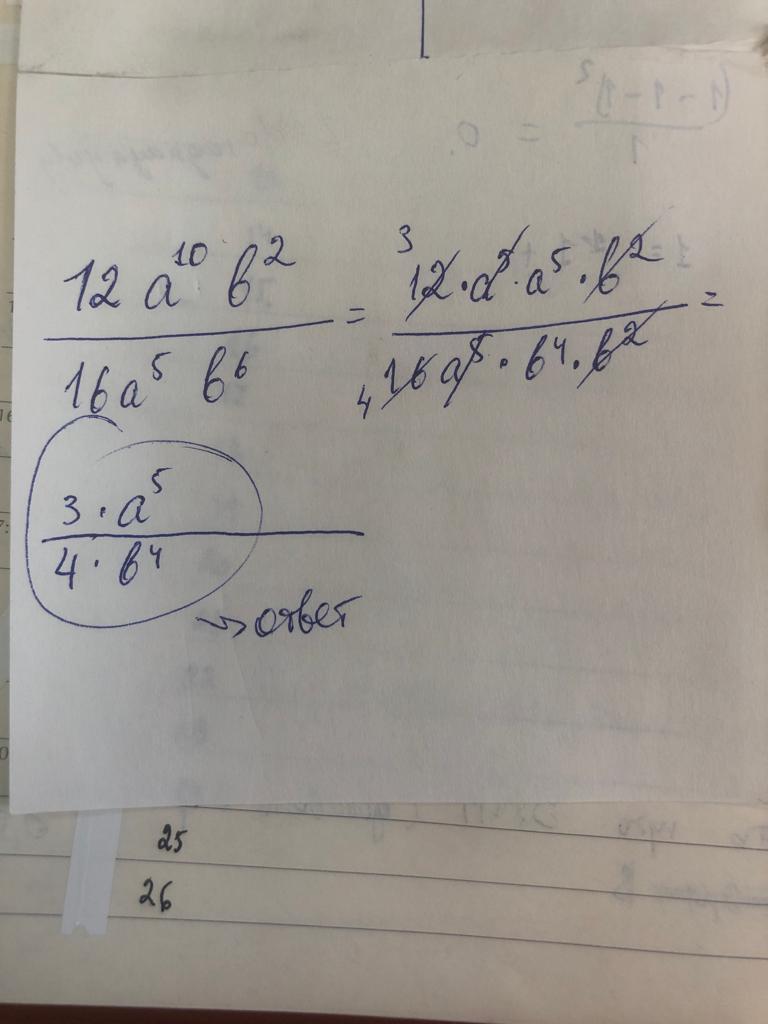 12 a^10 b^2 / 16a^5 b^6 = 3 12·a^5·a^5·b^2 / 4 16a^5·b^4·b^2 =
3·a^5
4·b^4
→ ответ
25
26